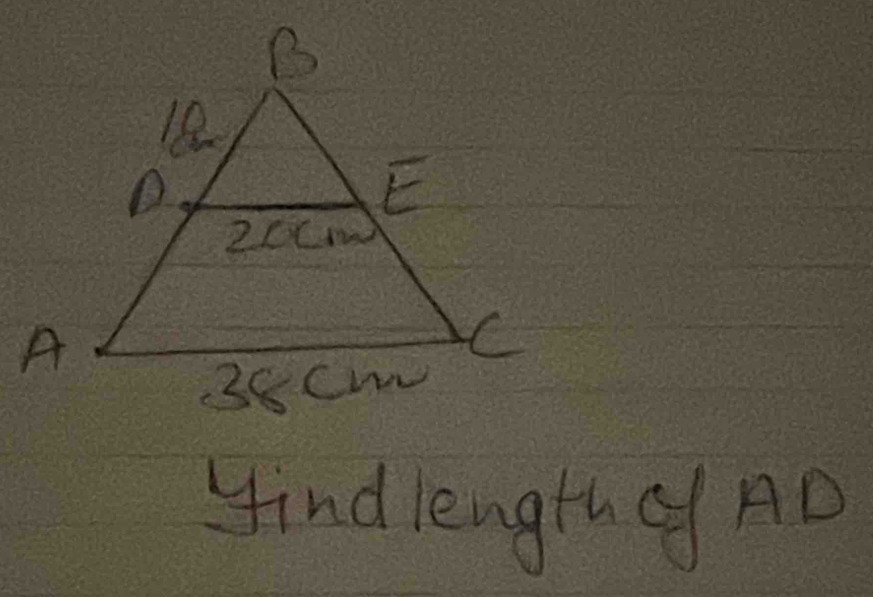 B
D E
20cm
A C
38cm
Find length of AD